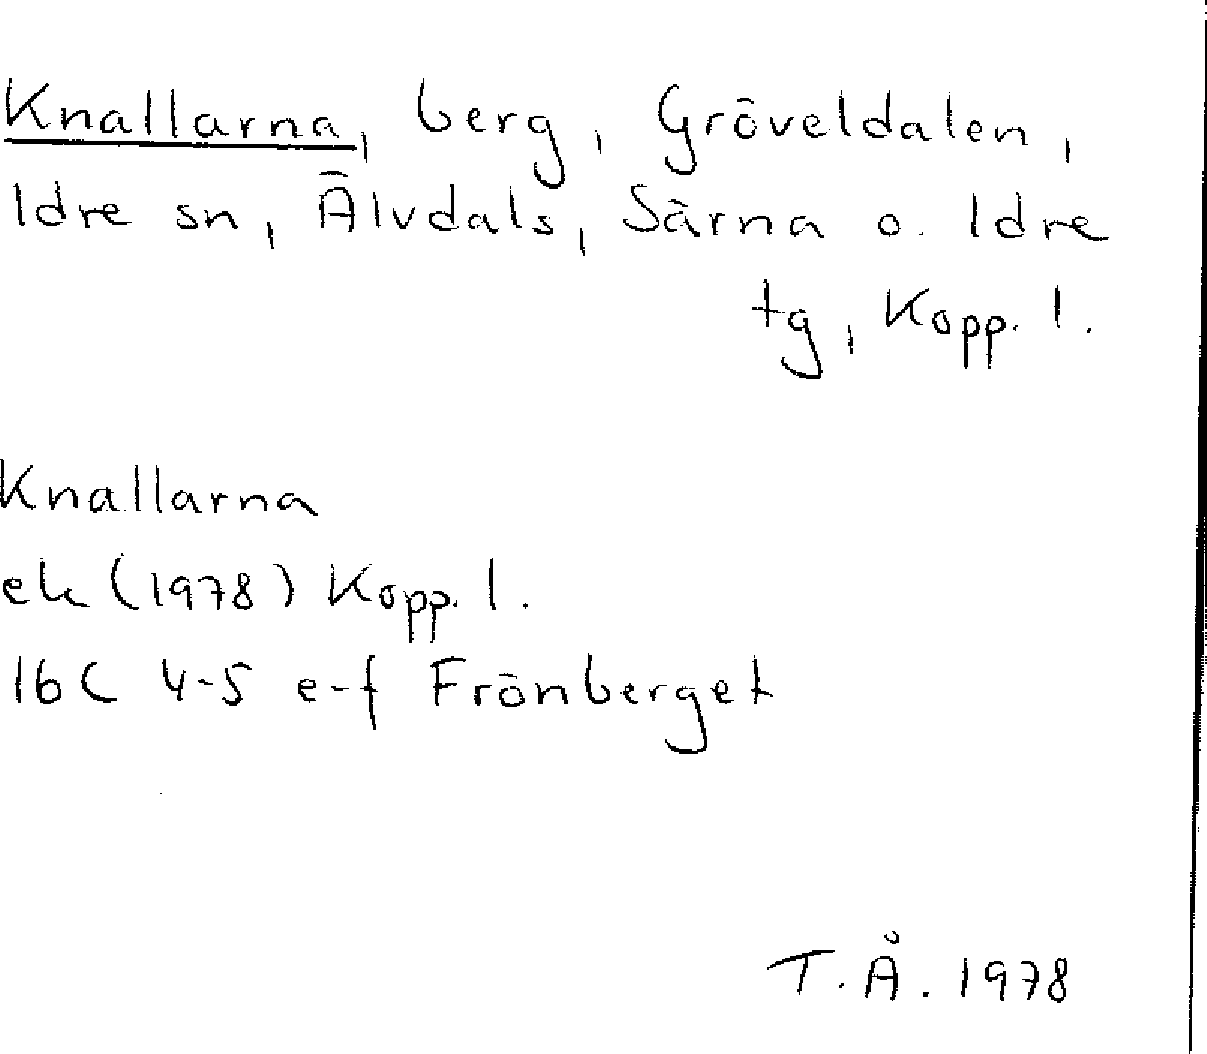 Knallarna, berg, Gröveldalen,
Idre sn, Älvdals, Särna o. Idre
tg, Kopp. l.
Knallarna
ek (1978) Kopp. l.
16C 4-5 e-f Frönberget
T.Å. 1978